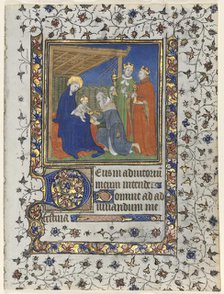 Deus in adiutorium
meum intende
Domine ad ad
iuuandum me
festina